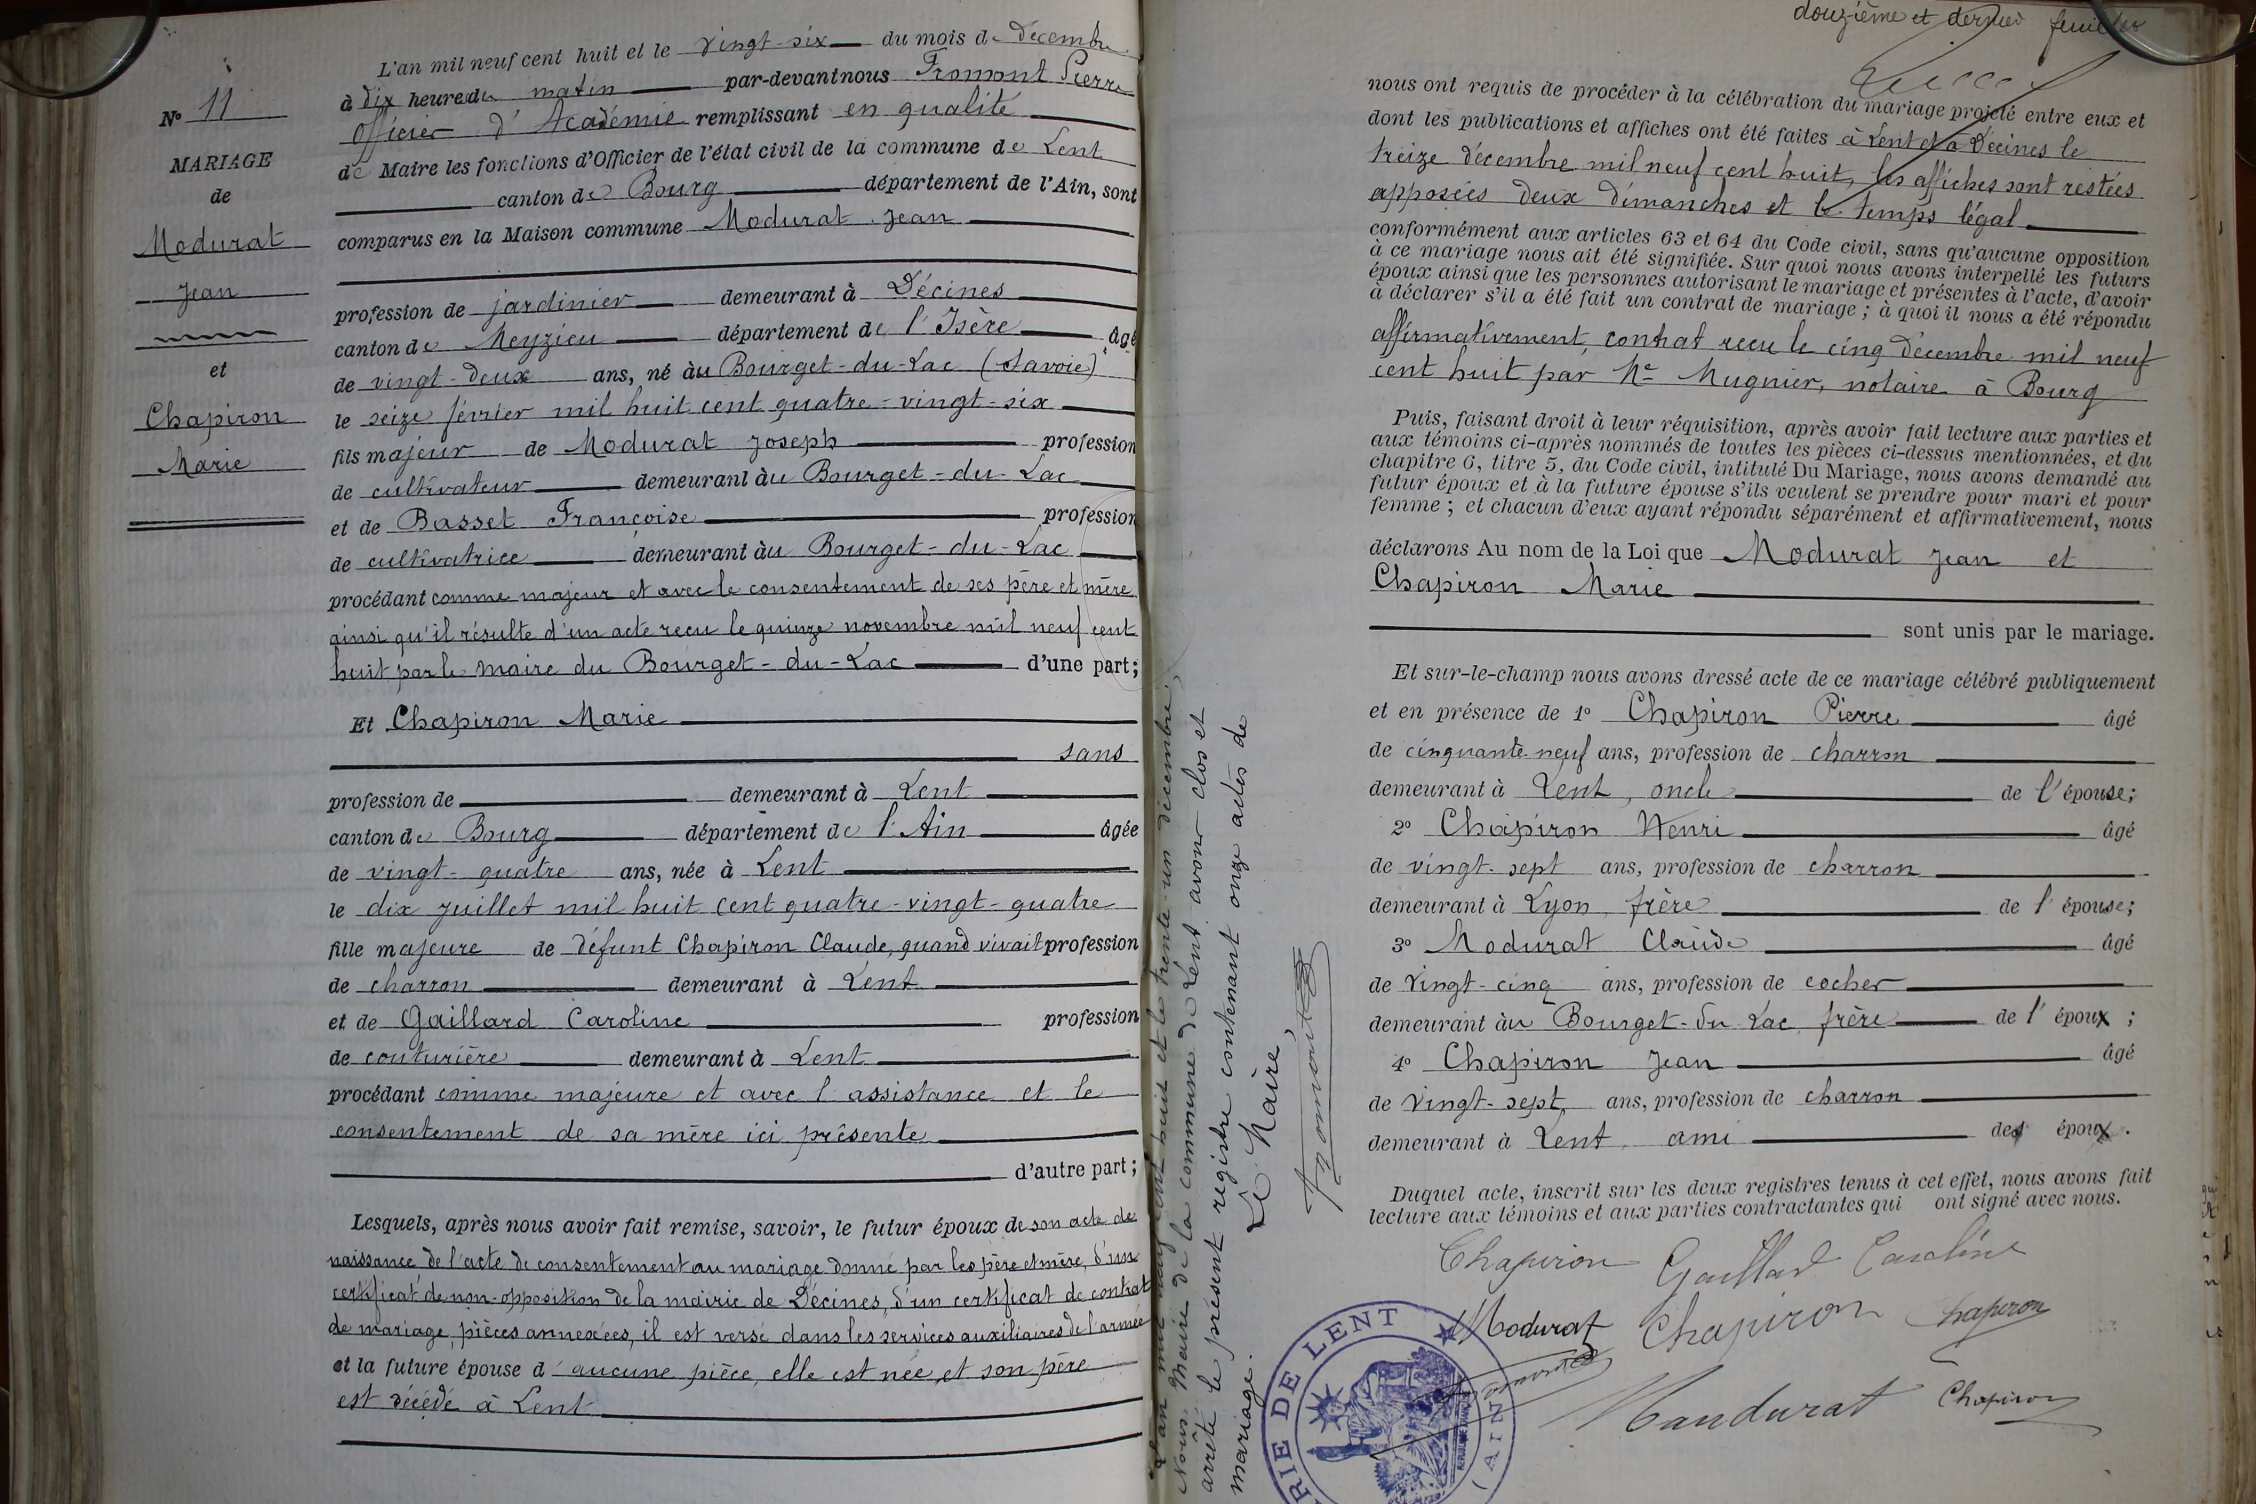 L'an mil neuf cent huit et le vingt-six du mois de décembre
à dix heure du matin par-devant nous Fromont Pierre
officier d'Académie remplissant en qualité
de Maire les fonctions d'Officier de l'état civil de la commune de Lent
canton de Bourg département de l'Ain, sont
comparus en la Maison commune Modurat Jean
profession de jardinier demeurant à Décines
canton de Meyzieu département de l'Isère âgé
de vingt-deux ans, né au Bourget-du-Lac (Savoie)
le seize février mil huit cent quatre-vingt-six
fils majeur de Modurat Joseph profession
de cultivateur demeurant au Bourget-du-Lac
et de Basset Françoise profession
de cultivatrice demeurant au Bourget-du-Lac
procédant comme majeur et avec le consentement de ses père et mère
ainsi qu'il résulte d'un acte reçu le quinze novembre mil neuf cent
huit par le maire du Bourget-du-Lac d'une part;
Et Chapiron Marie
sans
profession de demeurant à Lent
canton de Bourg département de l'Ain âgée
de vingt-quatre ans, née à Lent
le dix juillet mil huit cent quatre-vingt-quatre
fille majeure de défunt Chapiron Claude, quand vivait profession
de charron demeurant à Lent
et de Gaillard Caroline profession
de couturière demeurant à Lent
procédant comme majeure et avec l'assistance et le
consentement de sa mère ici présente
d'autre part;
Lesquels, après nous avoir fait remise, savoir, le futur époux de son acte de
naissance de l'acte de consentement au mariage donné par les père et mère, d'un
certificat de non-opposition de la mairie de Décines, d'un certificat de contrat
de mariage, pièces annexées, il est versé dans les services auxiliaires de l'armée
et la future épouse d'aucune pièce, elle est née et son père
est décédé à Lent
N° 11
MARIAGE
de
Modurat
Jean
et
Chapiron
Marie
L'an mil neuf cent huit et le trente-un décembre,
Nous, Maire de la commune de Lent avons clos et
arrêté le présent registre contenant onze actes de
mariage.
Le Maire,
douzième et dernier feuillet
nous ont requis de procéder à la célébration du mariage projeté entre eux et
dont les publications et affiches ont été faites à Lent et à Décines le
treize décembre mil neuf cent huit, les affiches sont restées
apposées deux dimanches et le temps légal
conformément aux articles 63 et 64 du Code civil, sans qu'aucune opposition
à ce mariage nous ait été signifiée. Sur quoi nous avons interpellé les futurs
époux ainsi que les personnes autorisant le mariage et présentes à l'acte, d'avoir
à déclarer s'il a été fait un contrat de mariage; à quoi il nous a été répondu
affirmativement, contrat reçu le cinq décembre mil neuf
cent huit par Me Mugnier, notaire à Bourg
Puis, faisant droit à leur réquisition, après avoir fait lecture aux parties et
aux témoins ci-après nommés de toutes les pièces ci-dessus mentionnées, et du
chapitre 6, titre 5, du Code civil, intitulé Du Mariage, nous avons demandé au
futur époux et à la future épouse s'ils veulent se prendre pour mari et pour
femme; et chacun d'eux ayant répondu séparément et affirmativement, nous
déclarons Au nom de la Loi que Modurat Jean et
Chapiron Marie
sont unis par le mariage.
Et sur-le-champ nous avons dressé acte de ce mariage célébré publiquement
et en présence de 1° Chapiron Pierre âgé
de cinquante-neuf ans, profession de charron
demeurant à Lent, oncle de l'épouse;
2° Chapiron Henri âgé
de vingt-sept ans, profession de charron
demeurant à Lyon, frère de l'épouse;
3° Modurat Claude âgé
de vingt-cinq ans, profession de cocher
demeurant au Bourget-du-Lac, frère de l'époux;
4° Chapiron Jean âgé
de vingt-sept ans, profession de charron
demeurant à Lent, ami des époux.
Duquel acte, inscrit sur les deux registres tenus à cet effet, nous avons fait
lecture aux témoins et aux parties contractantes qui ont signé avec nous.
Chapiron Gaillard Caroline
Modurat Chapiron Chapiron
Maudurat Chapiron
MAIRIE DE LENT
(AIN)